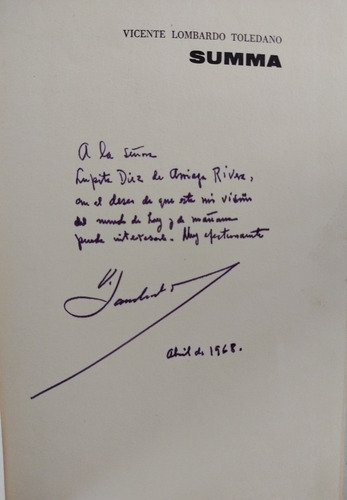 VICENTE LOMBARDO TOLEDANO
SUMMA
A la Señora
Lupita Díaz de Arriaga Rivera,
con el deseo de que esta mi visión
del mundo de hoy y de mañana
pueda interesarle. Muy afectuosamente
V. Lombardo T
Abril de 1968.